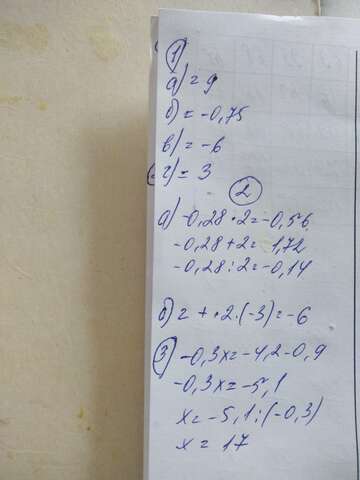 1
а) = 9
б) = -0,75
в) = -6
г) = 3
2
а) -0,28 · 2 = -0,56
-0,28 + 2 = 1,72
-0,28 : 2 = -0,14
б) 2 + · 2 · (-3) = -6
3 -0,3x = -4,2 - 0,9
-0,3x = -5,1
x = -5,1 : (-0,3)
x = 17